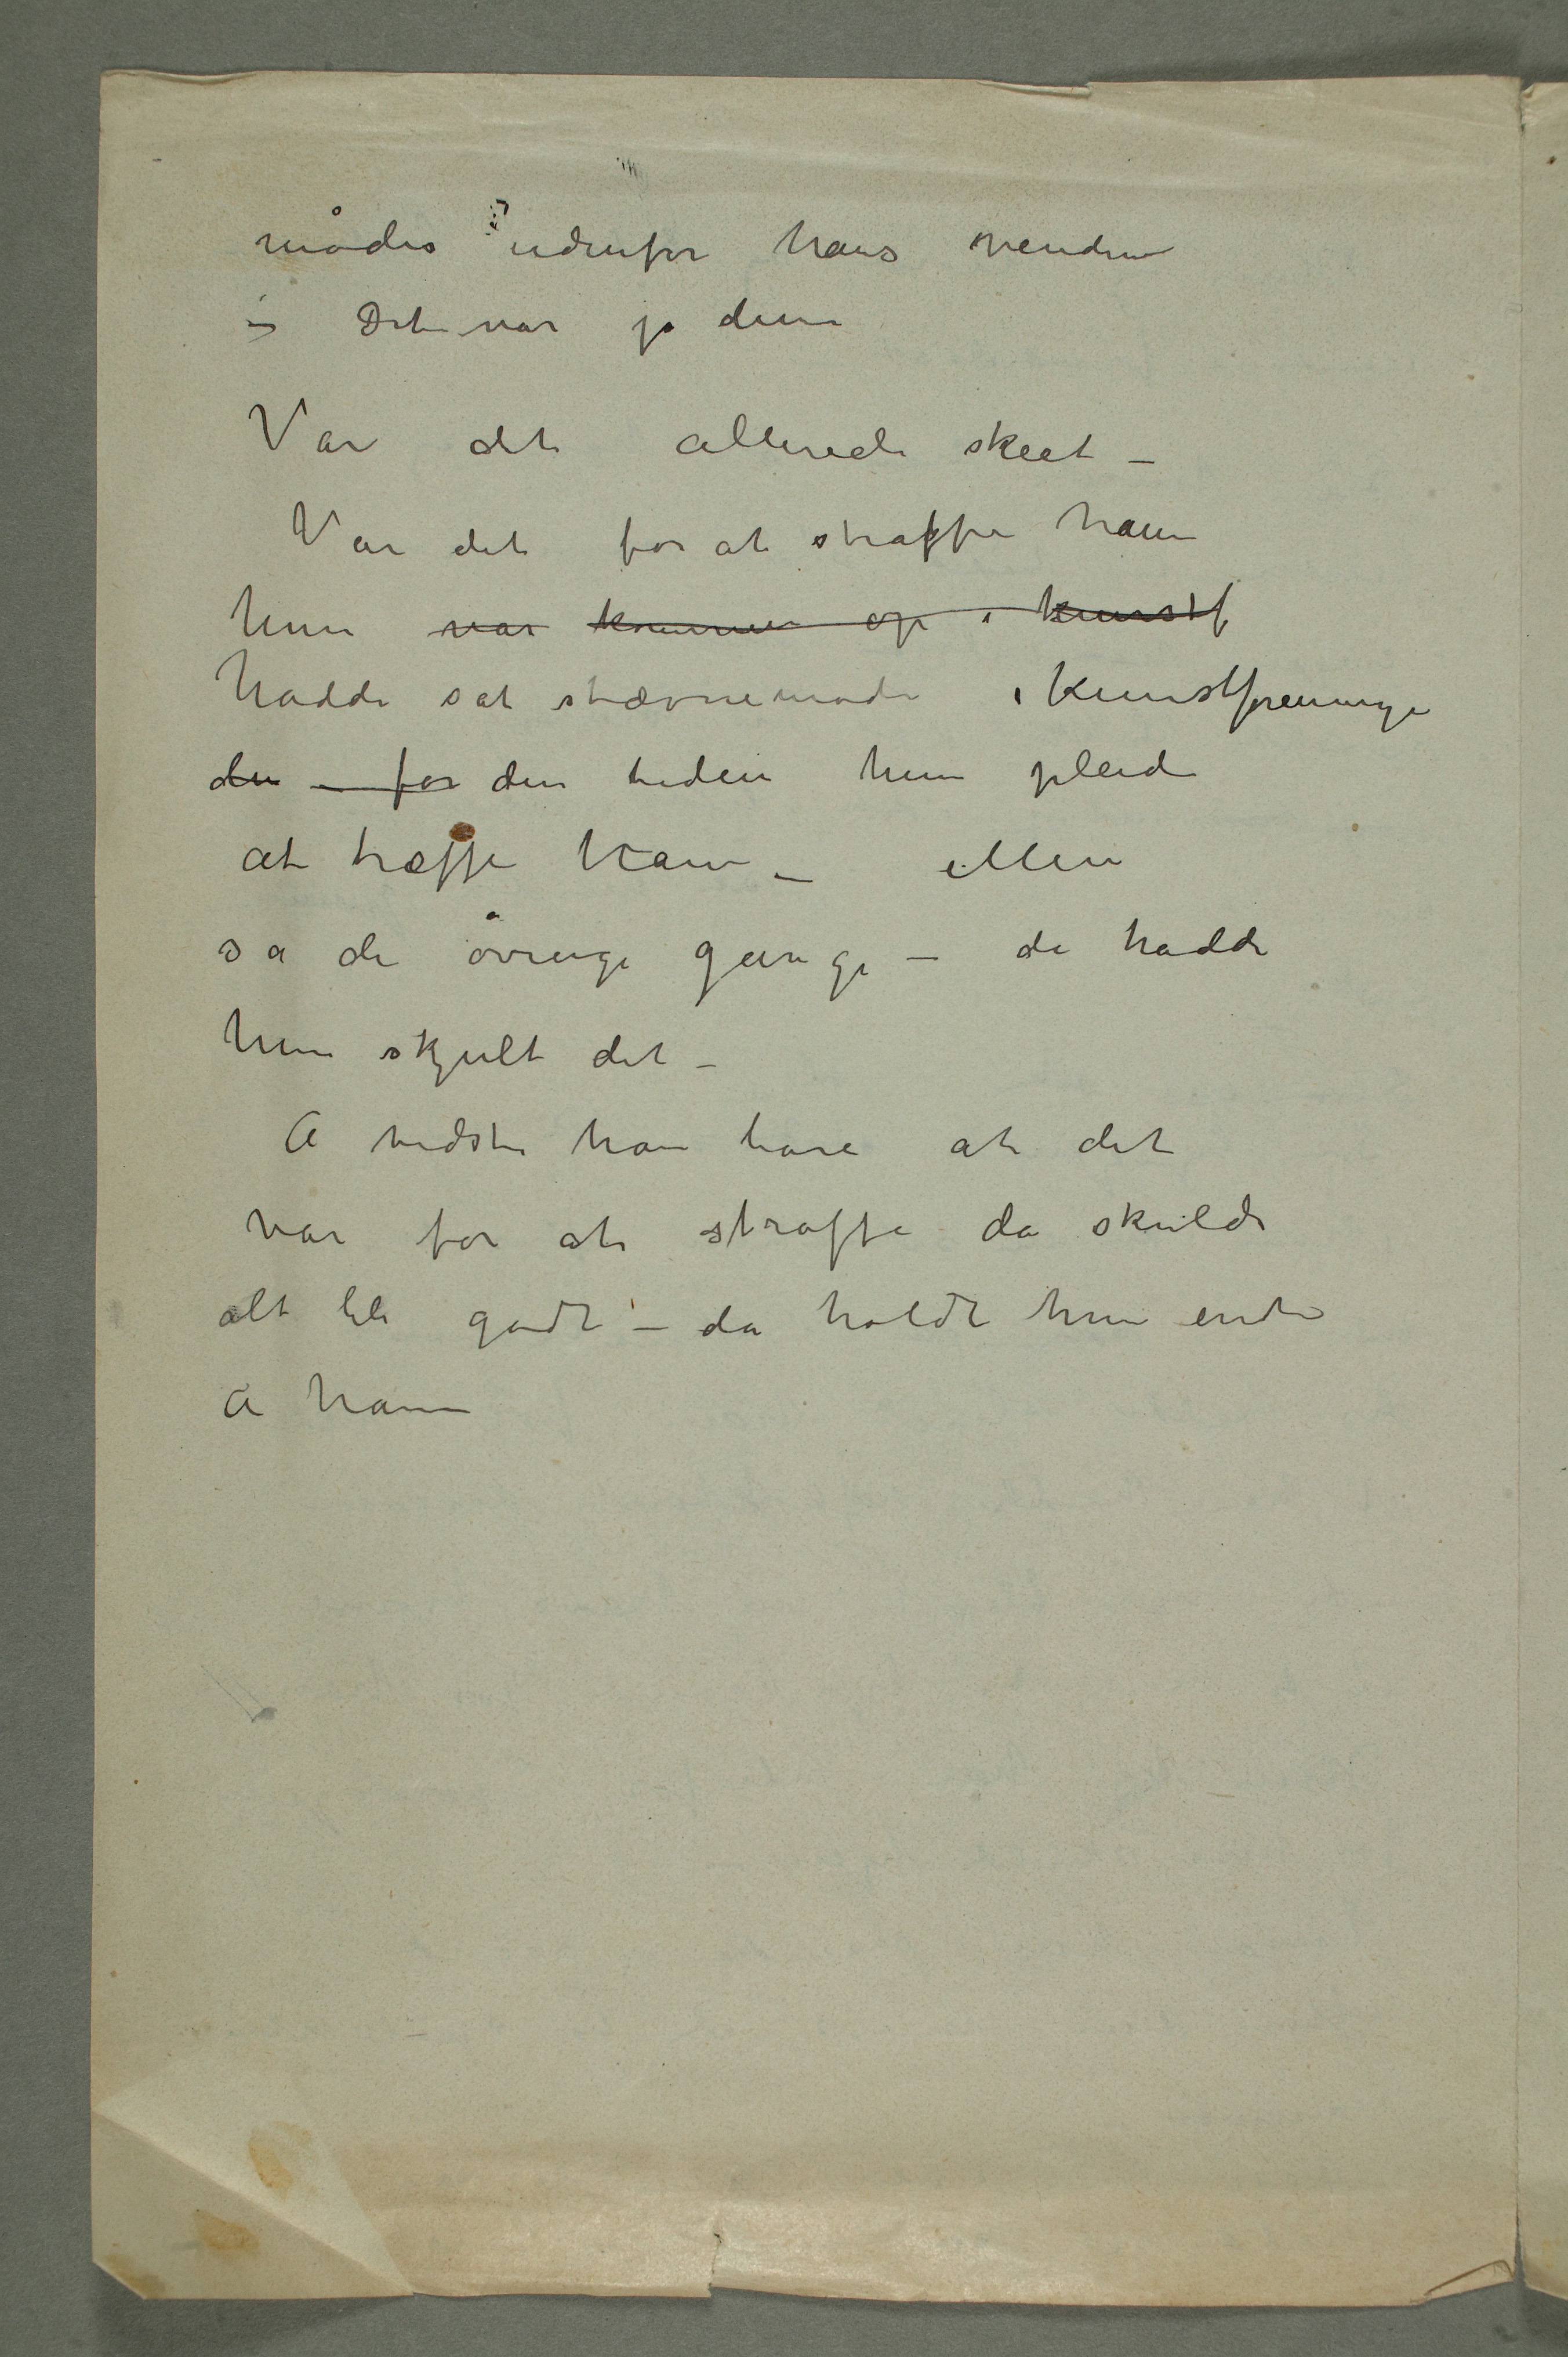 mødes udenfor hans venden
– Det var jo dem
Var det allerede skeet –
Var det for at straffe ham
hun var kommen op i kunstf
hadde sat stævnemøde i Kunstforeninge
den – for den tiden hun pleide
at træffe ham – Men
så de øvrige gange – da hadde
hun skjult det –
Å vidste han bare at det
var for at straffe da skulde
alt bli godt – da holdt hun endu
a ham